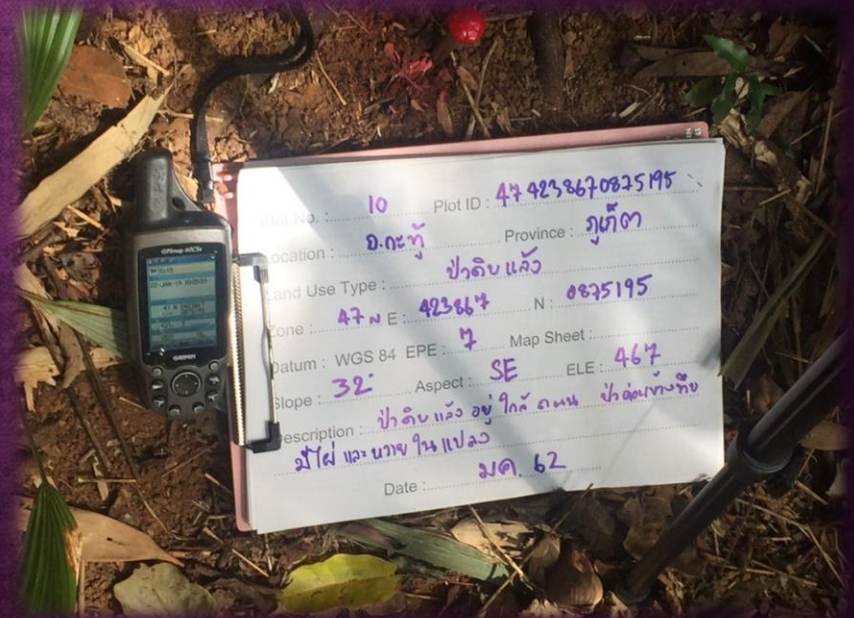 Plot No. : 10 Plot ID : 47 423867 0875195
Location : อ.กะทู้ Province : ภูเก็ต
Land Use Type : ป่าดิบแล้ง
Zone : 47 N E : 423867 N : 0875195
Datum : WGS 84 EPE : 7 Map Sheet :
Slope : 32° Aspect : SE ELE : 467
Description : ป่าดิบแล้ง อยู่ใกล้ถนน ป่าค่อนข้างทึบ
มีไผ่ และหวายในแปลง
Date : มค. 62
GARMIN